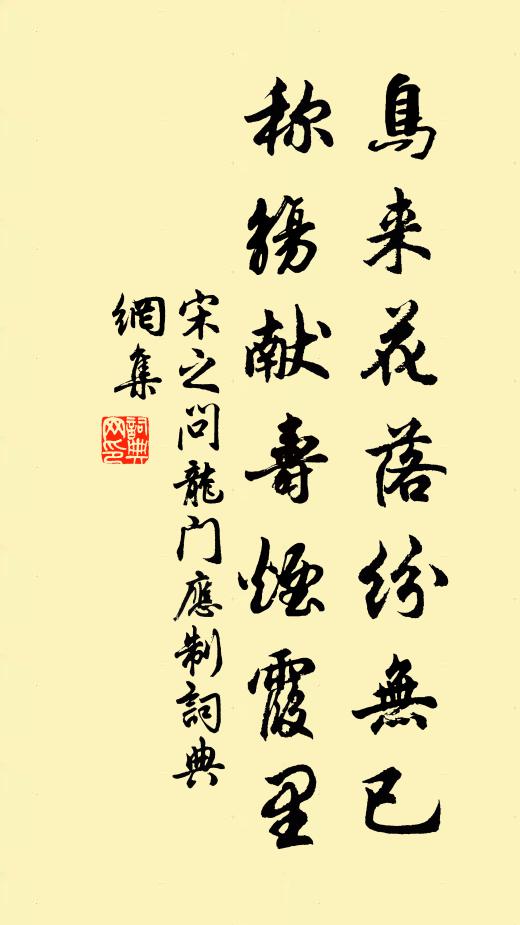 鳥来花落纷無已
称觴献壽煙霞里
宋之问龍门應制詞典
網集
詞典
网印